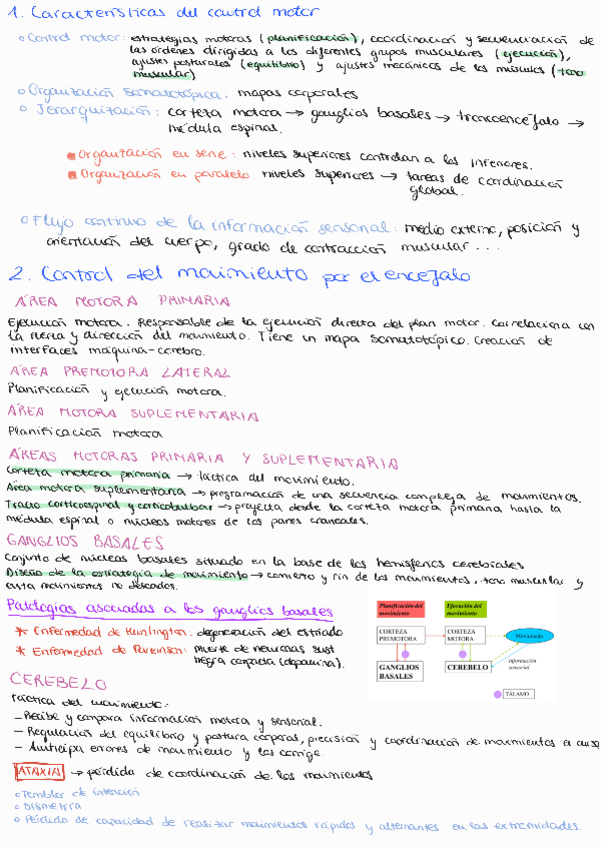 1. Características del control motor
o Control motor: estrategias motoras (planificación), coordinación y secuenciación de
las órdenes dirigidas a los diferentes grupos musculares (ejecución),
ajustes posturales (equilibrio) y ajustes mecánicos de los músculos (tono
muscular)
o Organización somatotópica: mapas corporales
o Jerarquización: corteza motora → ganglios basales → troncoencéfalo →
médula espinal.
Organización en serie: niveles superiores controlan a los inferiores.
Organización en paralelo: niveles superiores → tareas de coordinación
global.
o Flujo continuo de la información sensorial: medio externo, posición y
orientación del cuerpo, grado de contracción muscular...
2. Control del movimiento por el encéfalo
ÁREA MOTORA PRIMARIA
Ejecución motora. Responsable de la ejecución directa del plan motor. Correlaciona con
la fuerza y dirección del movimiento. Tiene un mapa somatotópico. Creación de
interfaces máquina-cerebro.
ÁREA PREMOTORA LATERAL
Planificación y ejecución motora.
ÁREA MOTORA SUPLEMENTARIA
Planificación motora
ÁREAS MOTORAS PRIMARIA Y SUPLEMENTARIA
Corteza motora primaria → táctica del movimiento.
Área motora suplementaria → programación de una secuencia compleja de movimientos.
Tracto corticoespinal y corticobulbar → proyecta desde la corteza motora primaria hasta la
médula espinal o núcleos motores de los pares craneales.
GANGLIOS BASALES
Conjunto de núcleos basales situado en la base de los hemisferios cerebrales
Diseño de la estrategia de movimiento → comienzo y fin de los movimientos, tono muscular y
evita movimientos no deseados.
Patologías asociadas a los ganglios basales
* Enfermedad de Huntington: degeneración del estriado
* Enfermedad de Parkinson: muerte de neuronas sust
negra compacta (dopamina).
Planificación del movimiento
Ejecución del movimiento
CORTEZA PREMOTORA
CORTEZA MOTORA
Movimiento
GANGLIOS BASALES
CEREBELO
información sensorial
TÁLAMO
CEREBELO
Táctica del movimiento:
- Recibe y compara información motora y sensorial.
- Regulación del equilibrio y postura corporal, precisión y coordinación de movimientos
- Anticipa errores de movimiento y los corrige.
ATAXIA → pérdida de coordinación de los movimientos
o Temblor de intención
o Dismetría
o Pérdida de capacidad de realizar movimientos rápidos y alternantes en las extremidades.